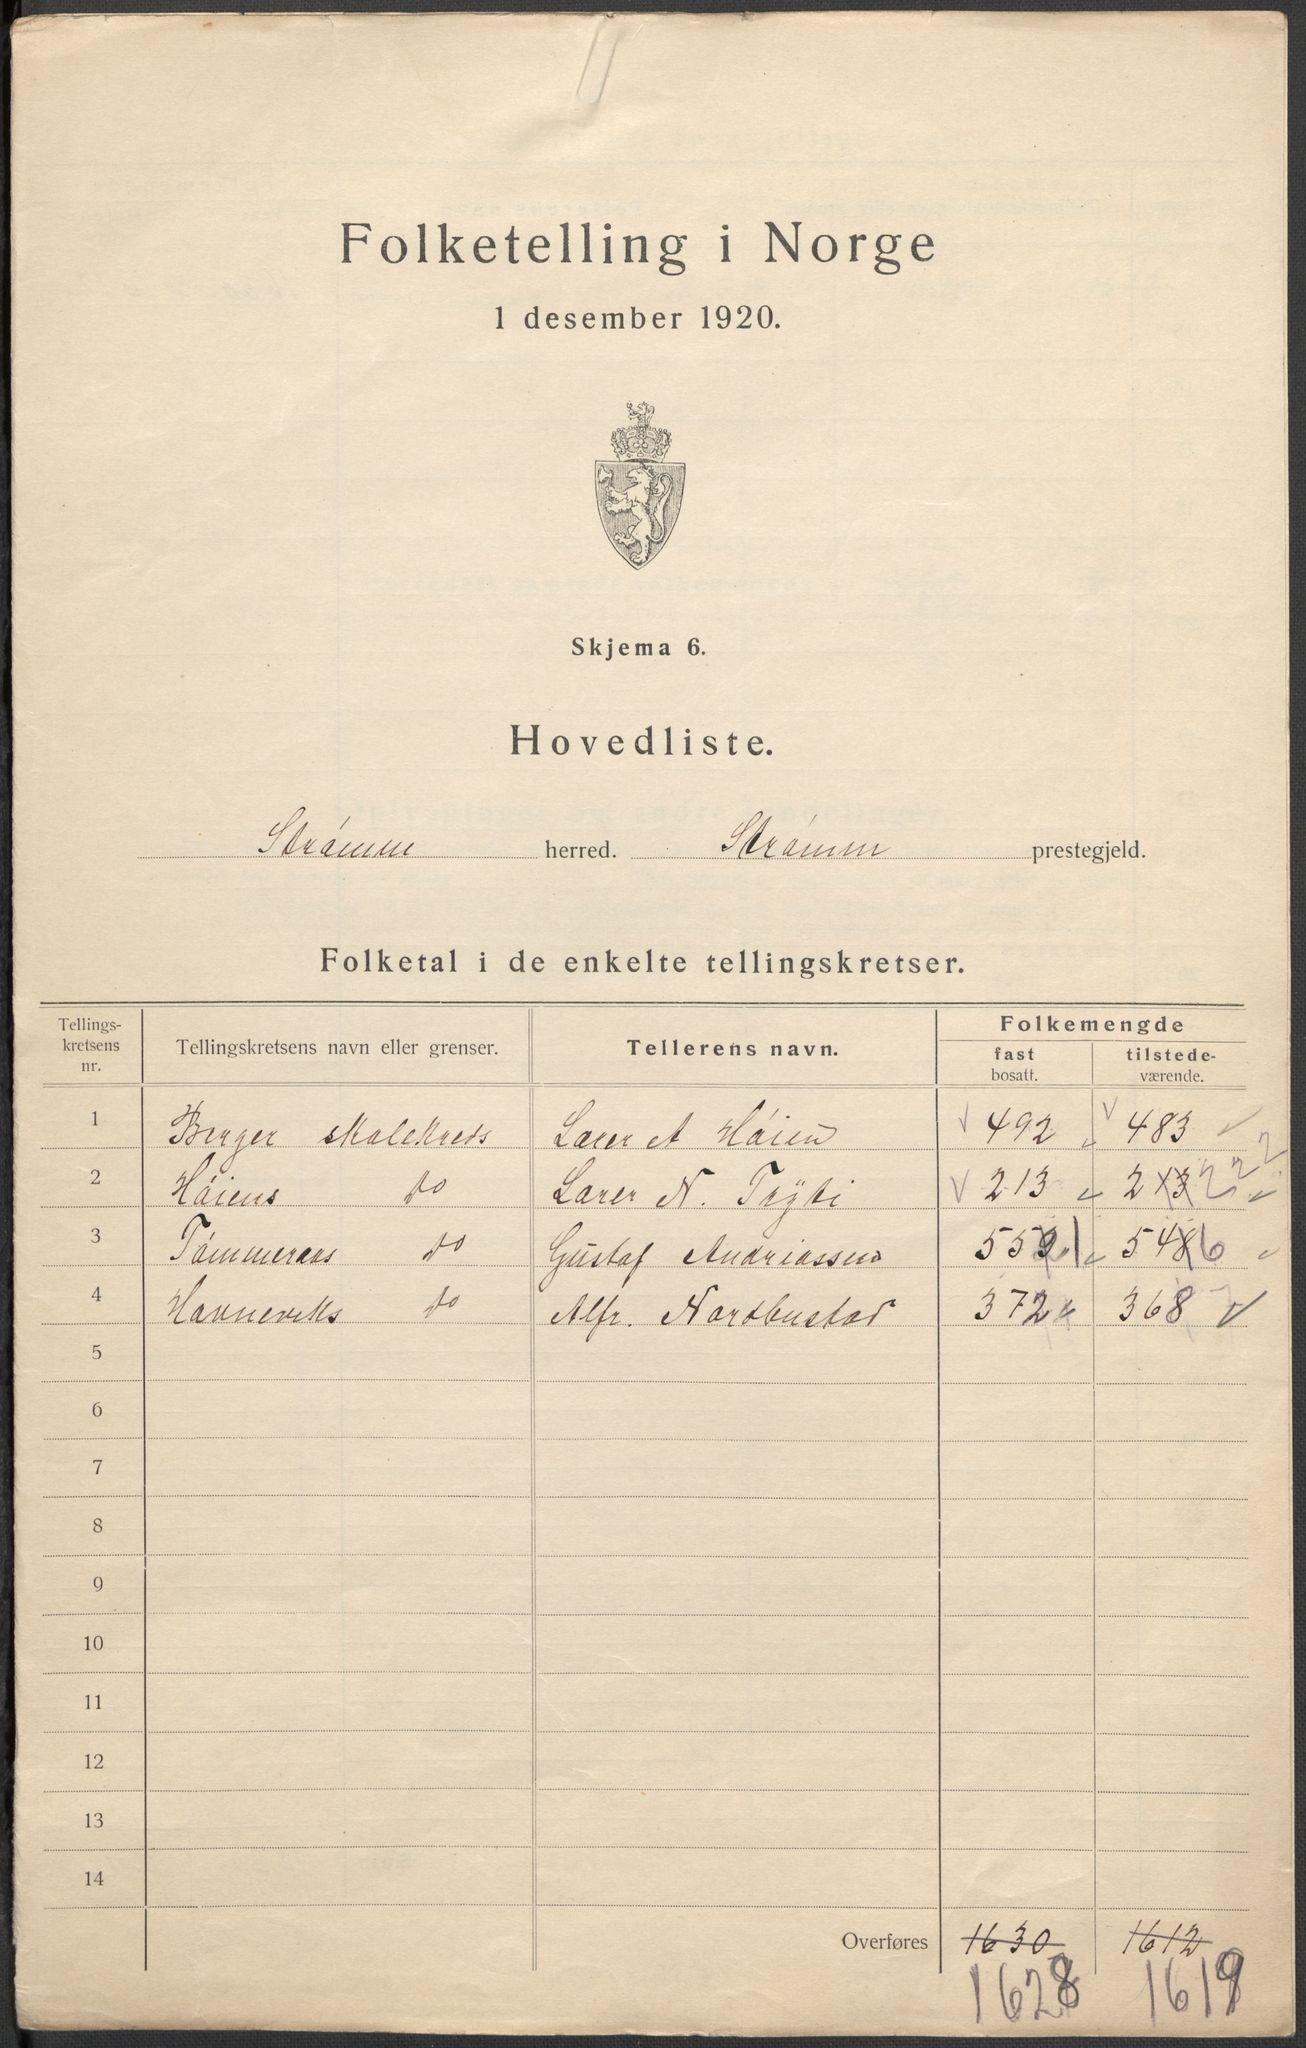 Folketelling i Norge
1 desember 1920.
Skjema 6.
Hovedliste.
Strømm herred. Strømm prestegjeld.
Folketal i de enkelte tellingskretser.
Tellings-
kretsens
nr.
Tellingskretsens navn eller grenser.
Tellerens navn.
Folkemengde
fast
bosatt.
tilstede-
værende.
1 Berger skolekreds Lærer A Høien 492 483
2 Høiens do Lærer N. Tryti 213 213 222
3 Tømmeraas do Gustaf Andriassen 553 1 548 6
4 Havneviks do Alfr. Nordbustad 372 368
5
6
7
8
9
10
11
12
13
14
Overføres 1630 1612
1628 1619